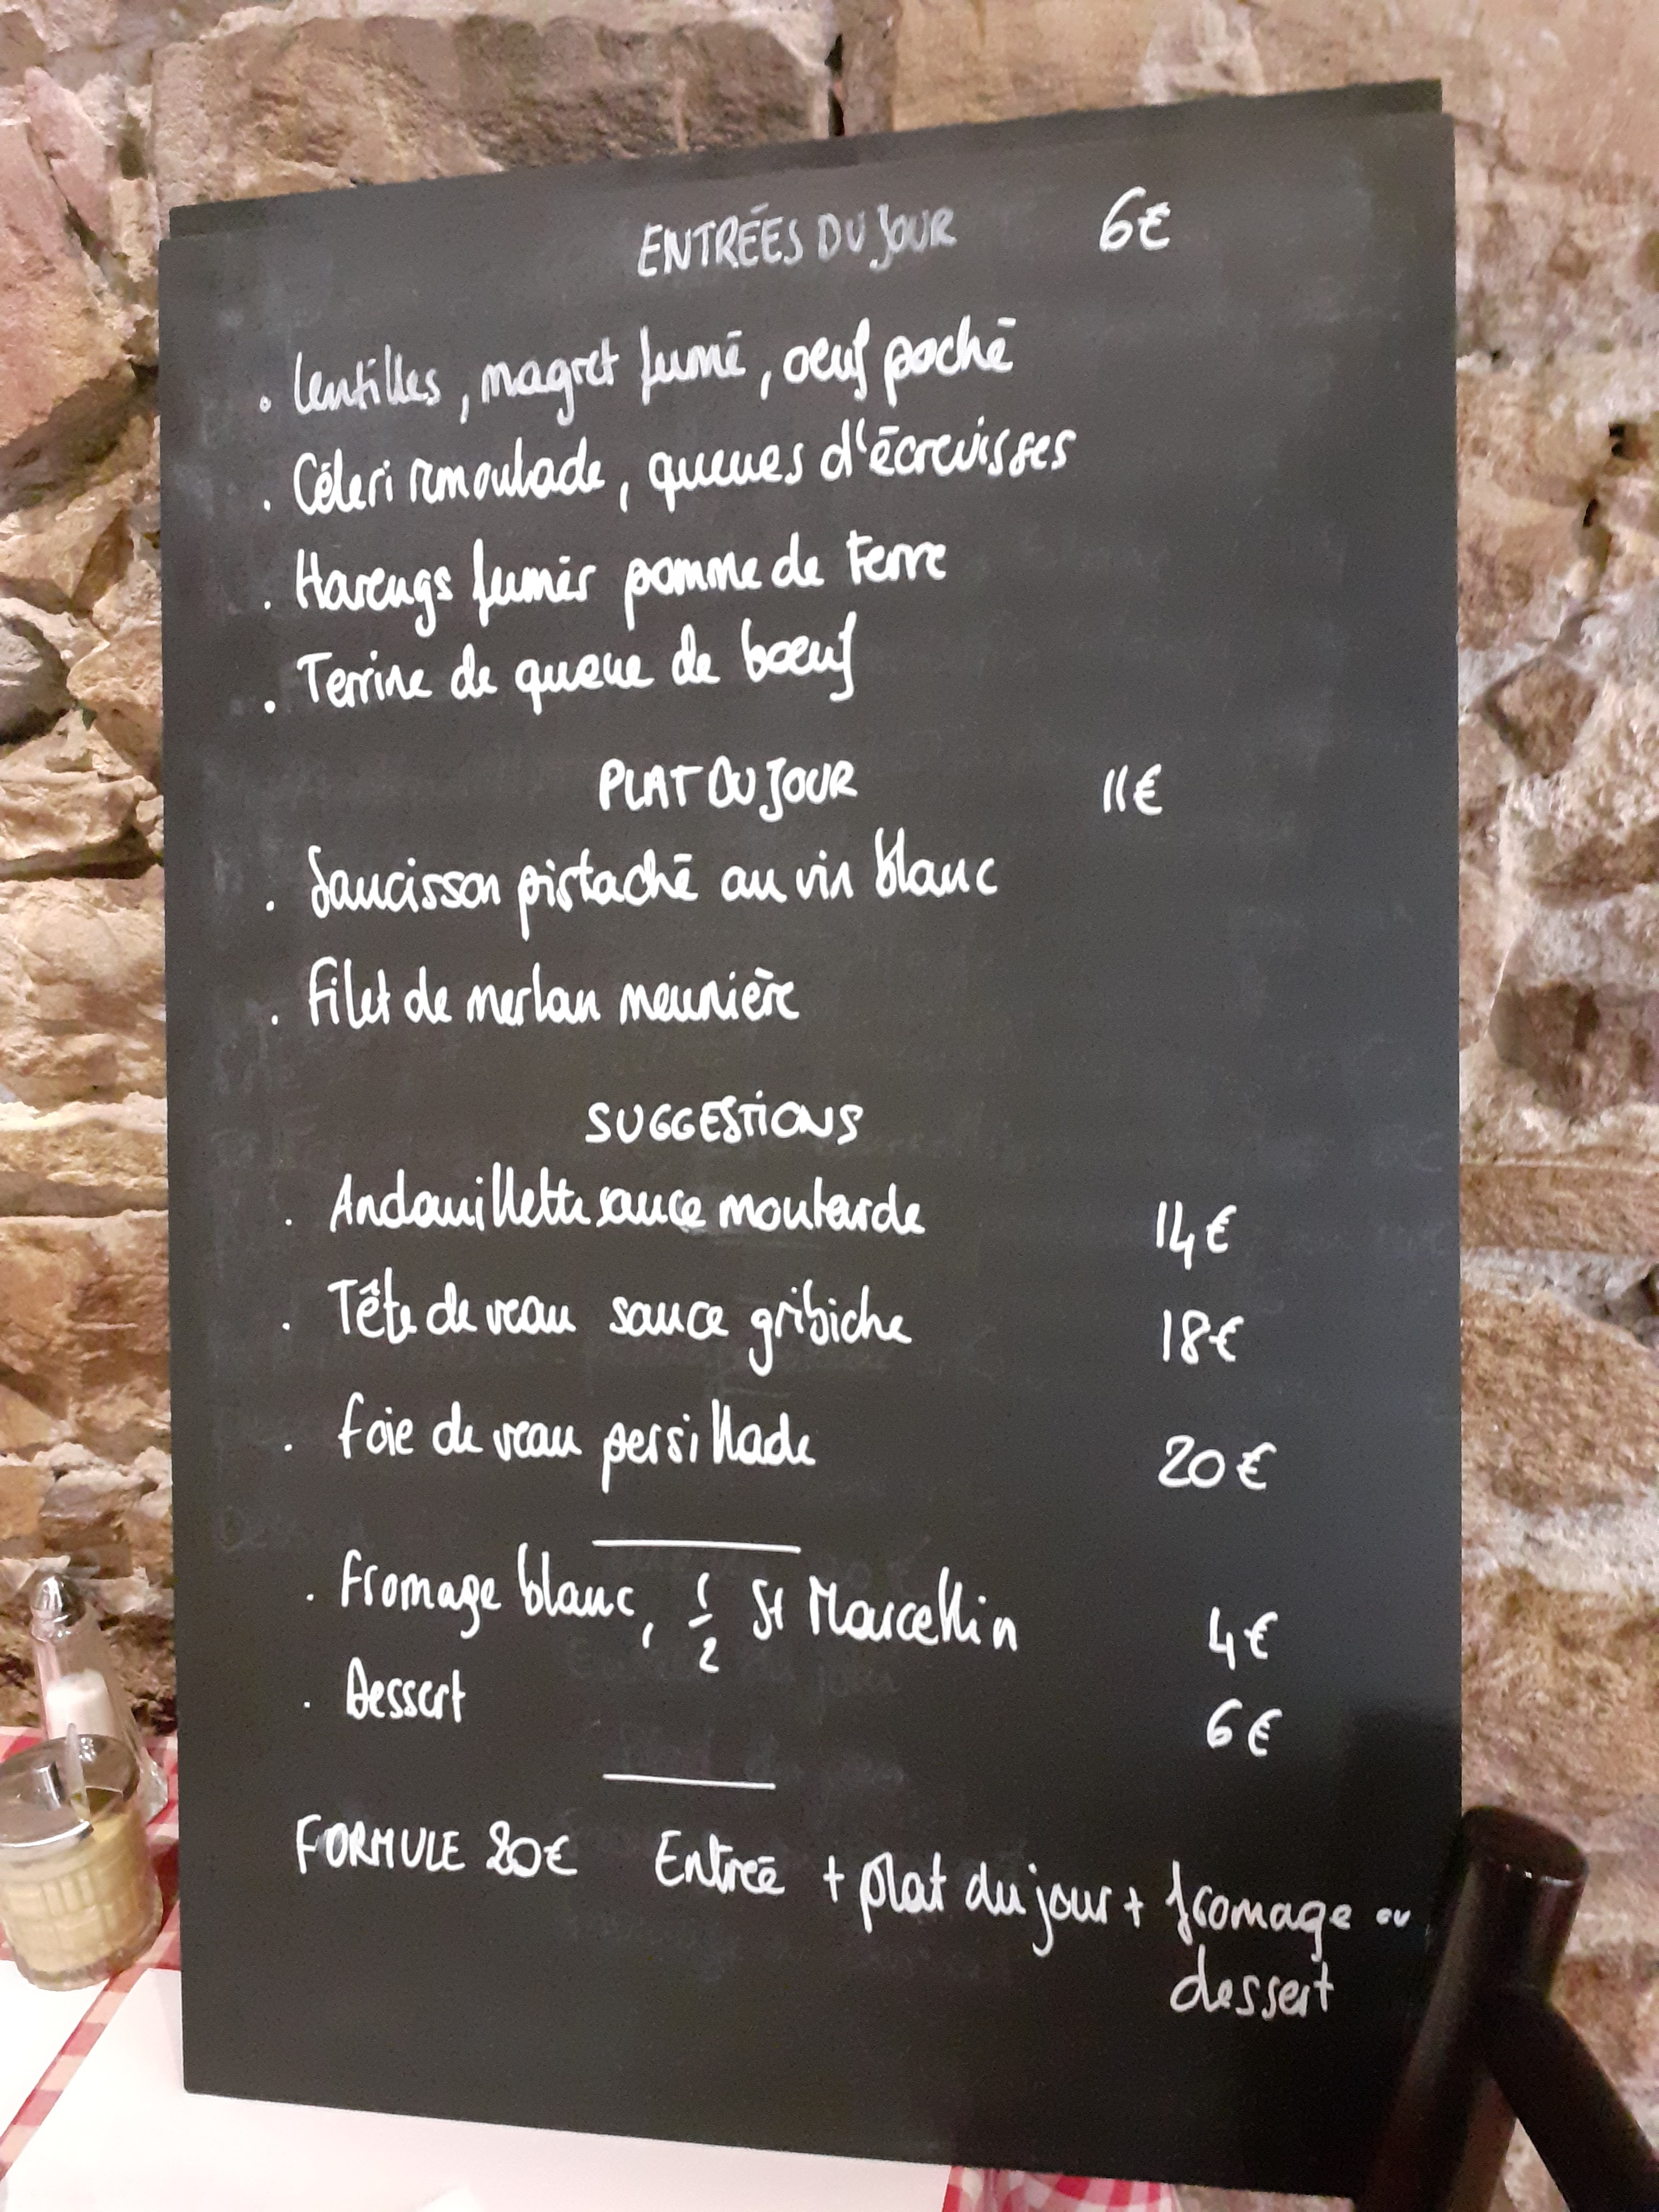 ENTRÉES DU JOUR 6€
. lentilles, magret fumé, oeuf poché
. Céleri remoulade, queues d'écrevisses
. Harengs fumés pomme de terre
. Terrine de queue de bœuf
PLAT DU JOUR 11€
. Saucisson pistaché au vin blanc
. Filet de merlan meunière
SUGGESTIONS
. Andouillette sauce moutarde 14€
. Tête de veau sauce gribiche 18€
. Foie de veau persillade 20€
. Fromage blanc, 1/2 St Marcellin 4€
. Dessert 6€
FORMULE 20€ Entrée + plat du jour + fromage ou
dessert